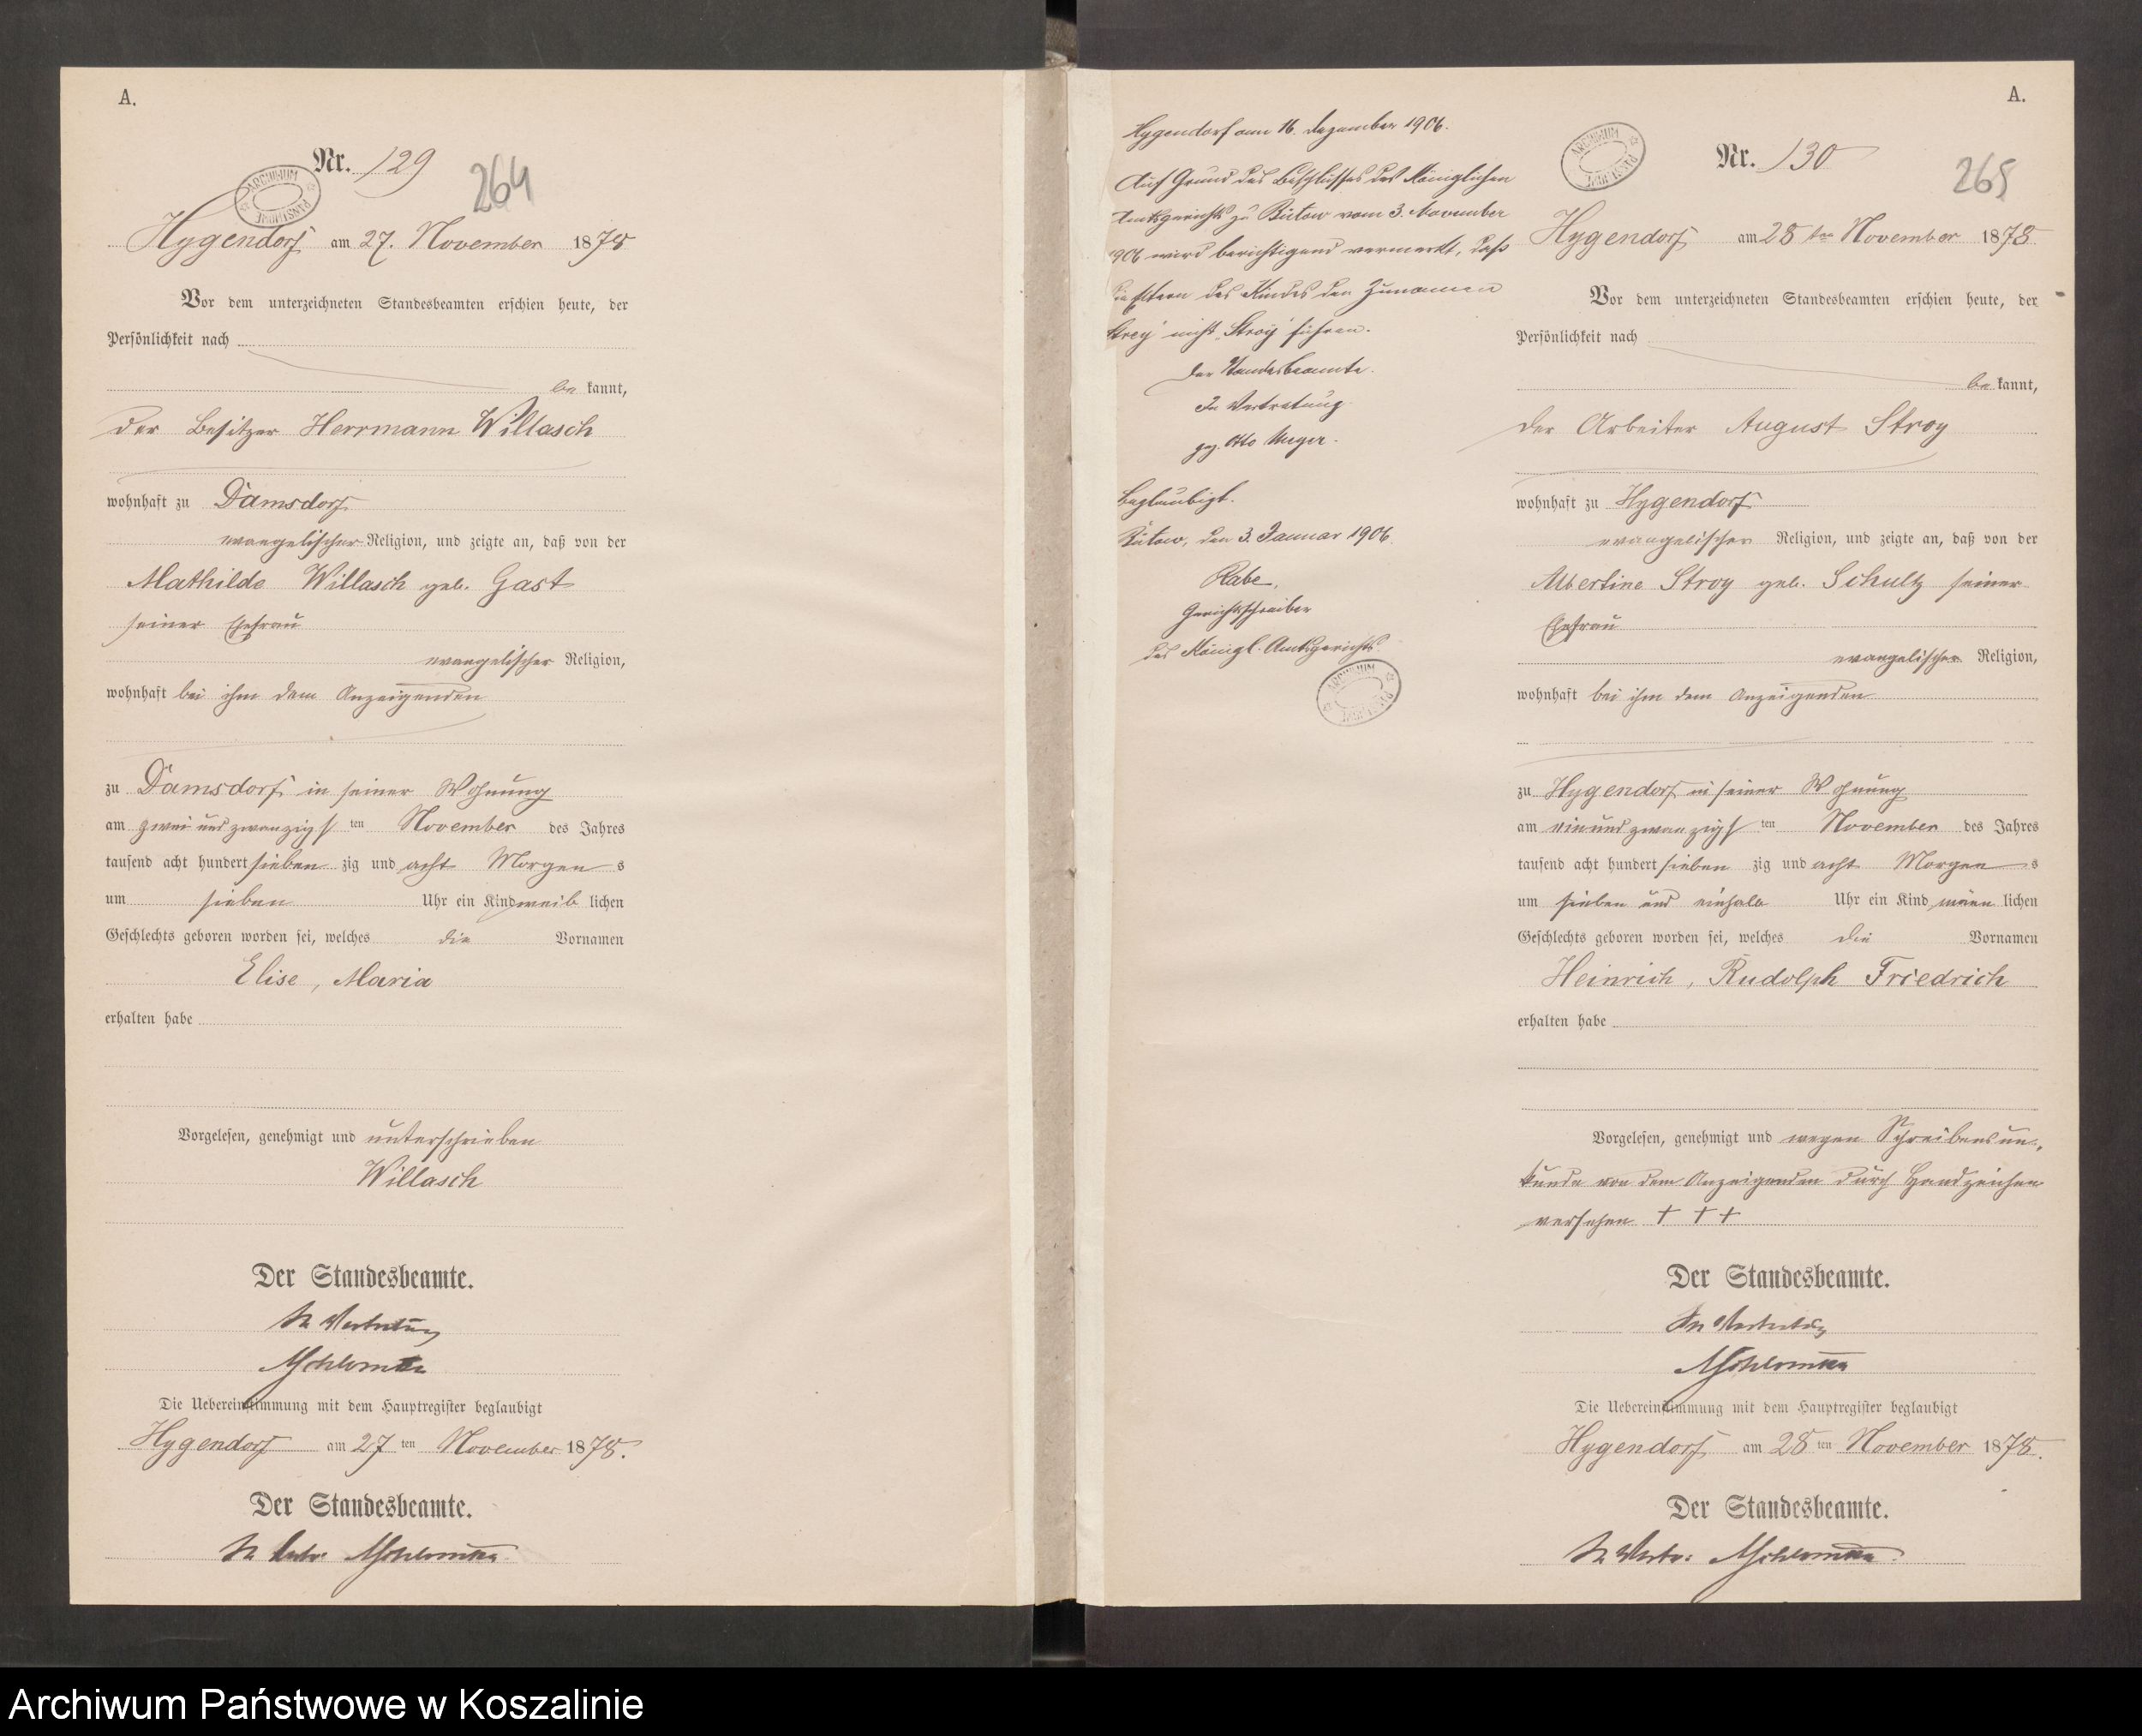 A.
Nr. 129
264
ARCHIWUM PAŃSTWOWE
Hygendorf am 27. November 1878
Vor dem unterzeichneten Standesbeamten erschien heute, der
Persönlichkeit nach
be kannt,
der Besitzer Herrmann Willasch
wohnhaft zu Damsdorf
evangelischer Religion, und zeigte an, daß von der
Mathilde Willasch geb. Gast
seiner Ehefrau
evangelischer Religion,
wohnhaft bei ihm dem Anzeigenden
zu Damsdorf in seiner Wohnung
am zwei und zwanzigsten November des Jahres
tausend acht hundert sieben zig und acht Morgens
um sieben Uhr ein Kind weib lichen
Geschlechts geboren worden sei, welches die Vornamen
Elise, Maria
erhalten habe
Vorgelesen, genehmigt und unterschrieben
Willasch
Der Standesbeamte.
In Vertretung
Die Uebereinstimmung mit dem Hauptregister beglaubigt
Hygendorf am 27 ten November 1878.
Der Standesbeamte.
In Vertr:
Hygendorf am 16. Dezember 1906.
Auf Grund des Beschlusses des Königlichen
Amtsgerichts zu Bütow vom 3. November
1906 wird berichtigend vermerkt, daß
die Eltern des Kindes den Zunamen
"Strey" nicht "Stroy" führen.
Der Standesbeamte.
In Vertretung
gez. Otto Unger.
Beglaubigt.
Bütow, den 3. Januar 1906.
Rabe,
Gerichtsschreiber
des Königl. Amtsgerichts.
ARCHIWUM PAŃSTWOWE
A.
ARCHIWUM PAŃSTWOWE
Nr. 130
265
Hygendorf am 28 ten November 1878
Vor dem unterzeichneten Standesbeamten erschien heute, der
Persönlichkeit nach
be kannt,
der Arbeiter August Stroy
wohnhaft zu Hygendorf
evangelischer Religion, und zeigte an, daß von der
Albertine Stroy geb. Schultz seiner
Ehefrau
evangelischer Religion,
wohnhaft bei ihm dem Anzeigenden
zu Hygendorf in seiner Wohnung
am ein und zwanzigsten November des Jahres
tausend acht hundert sieben zig und acht Morgens
um sieben und einhalb Uhr ein Kind männ lichen
Geschlechts geboren worden sei, welches die Vornamen
Heinrich, Rudolph Friedrich
erhalten habe
Vorgelesen, genehmigt und wegen Schreibensun-
kunde von dem Anzeigenden durch Handzeichen
versehen + + +
Der Standesbeamte.
In Vertretung
Die Uebereinstimmung mit dem Hauptregister beglaubigt
Hygendorf am 28 ten November 1878.
Der Standesbeamte.
In Vertr:
Archiwum Państwowe w Koszalinie